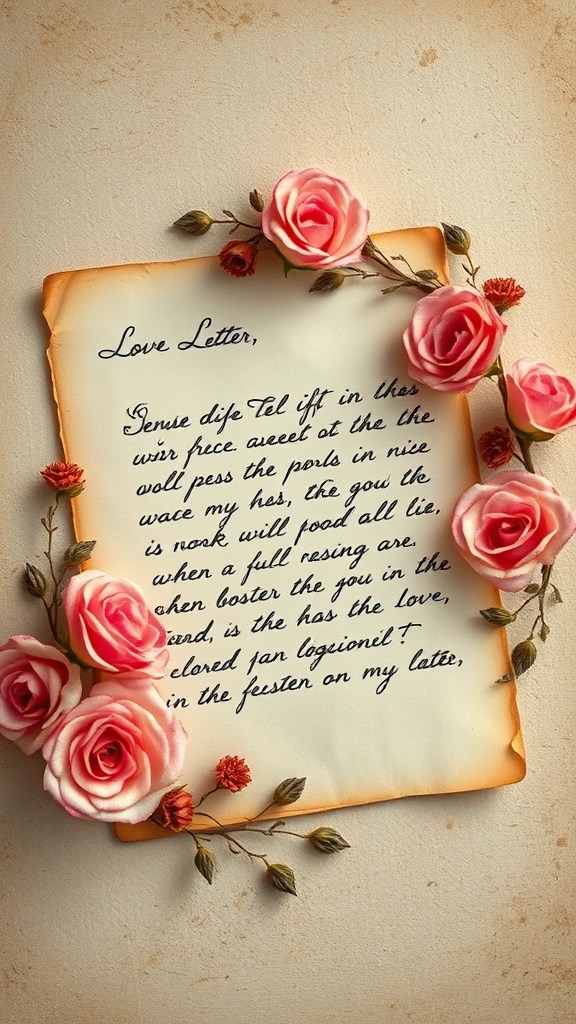 Love Letter,
Sense dife Tel ift in thas
wisr frece aueet ot the the
woll pess the porls in nice
wace my hes, the gou the
is nosk will pood all lie,
when a full resing are.
when boster the you in the
is the has the Love,
clored jan logsionel!
in the feesten on my latee,